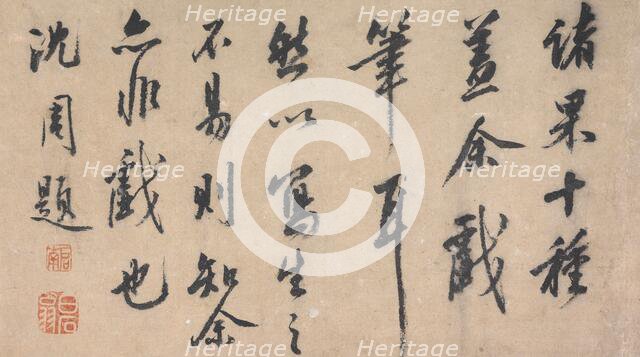 諸果十種
蓋余戲
筆耳
然以寫生之
不易則知余
亦非戲也
沈周題
啟南
白石翁
Heritage Images